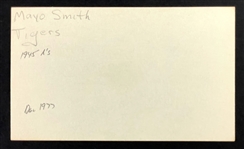 Mayo Smith
Tigers
1945 A's
Dec. 1977